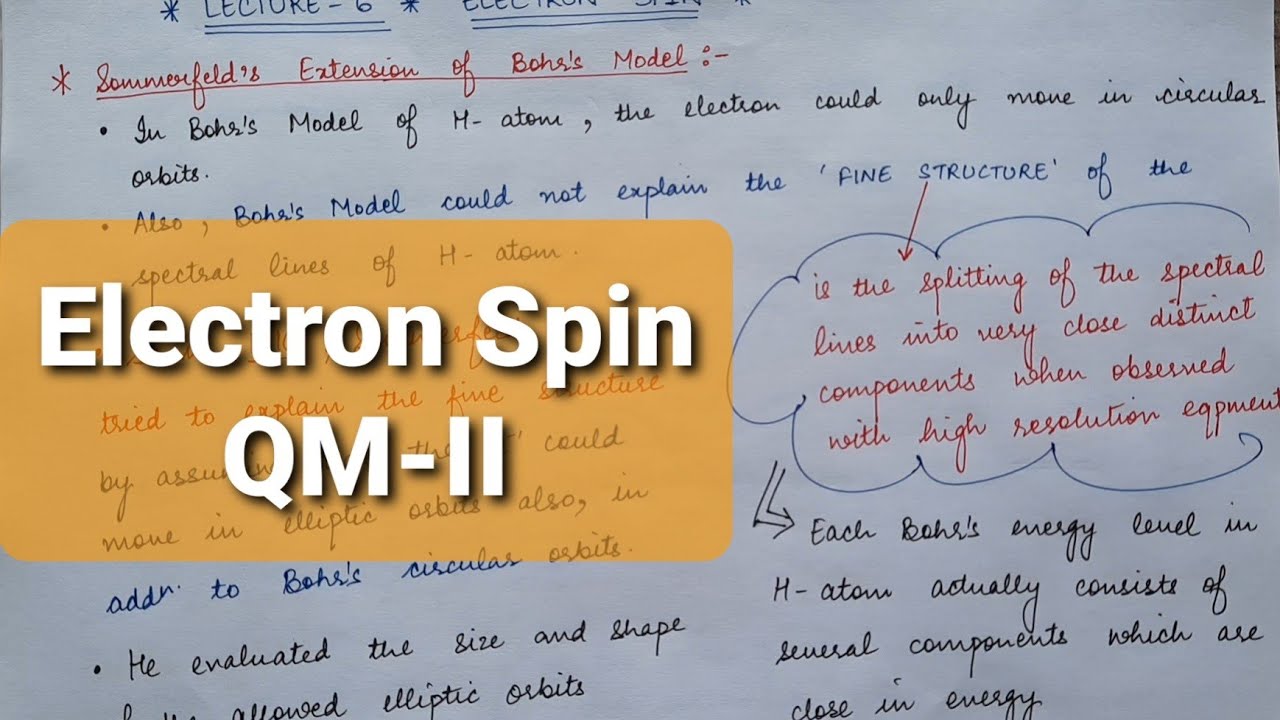 * LECTURE - 6 * ELECTRON SPIN *
* Sommerfeld's Extension of Bohr's Model :-
• In Bohr's Model of H-atom, the electron could only move in circular
orbits.
• Also, Bohr's Model could not explain the 'FINE STRUCTURE' of the
spectral lines of H-atom.
is the splitting of the spectral
lines into very close distinct
components when observed
with high resolution eqpment
Electron Spin
QM-II
tried to explain the fine structure
by could
move in elliptic orbits also, in
addn. to Bohr's circular orbits.
• He evaluated the size and shape
allowed elliptic orbits
Each Bohr's energy level in
H-atom actually consists of
several components which are
close in energy